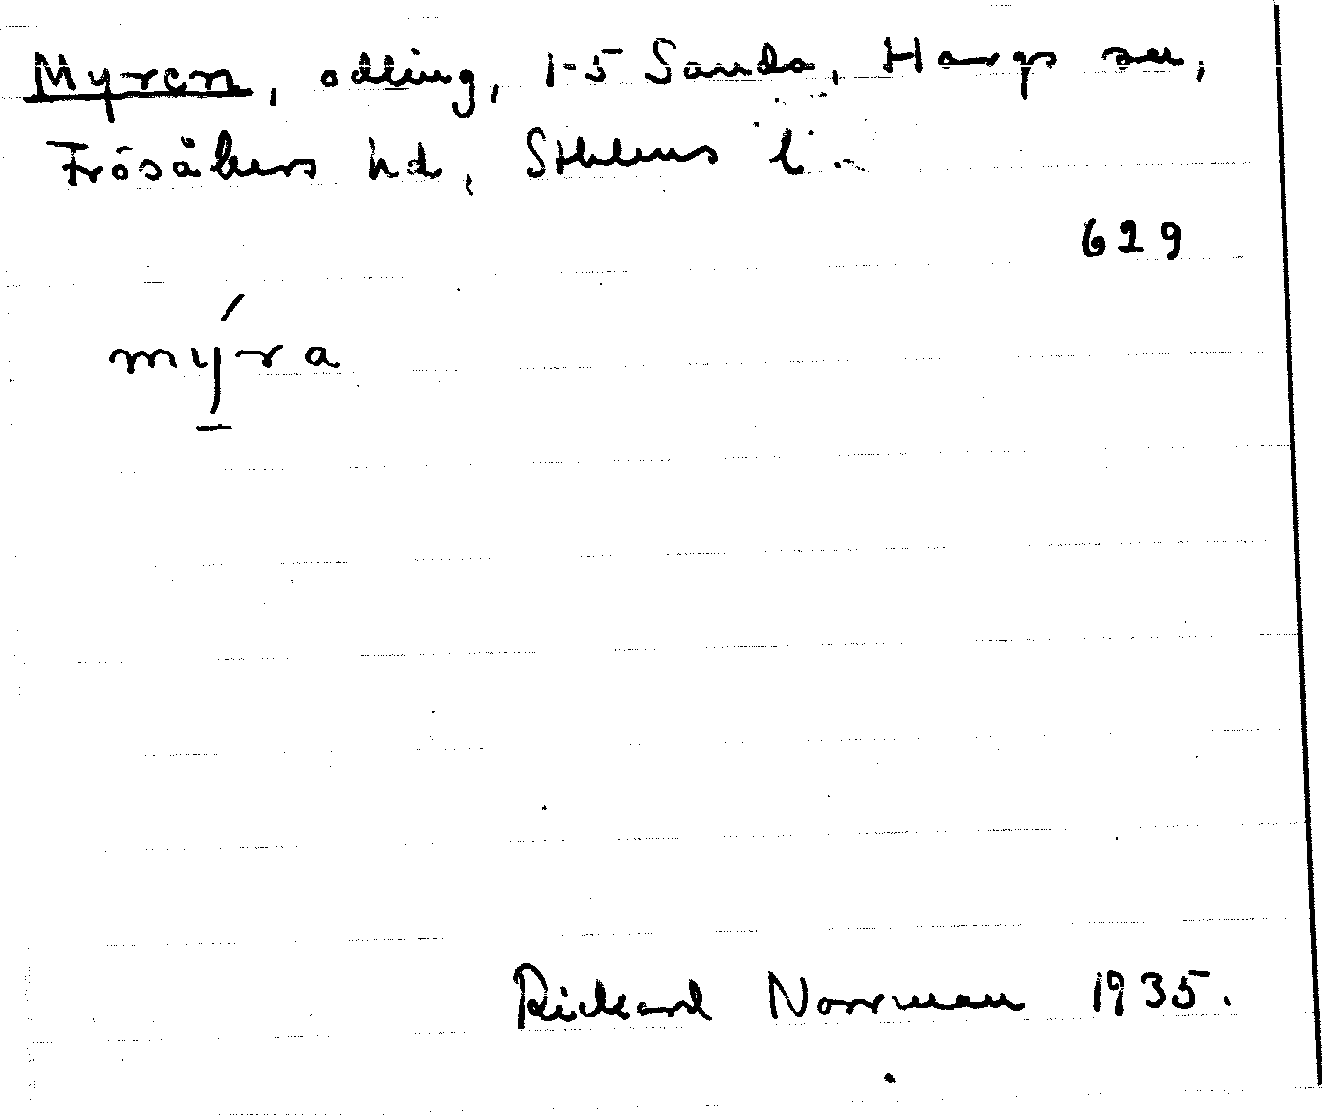 Myren, odling, 1-5 Sanda, Hargs sn,
Frösåkers hd, Sthlms l.
629
mýra
Rickard Norrman 1935.